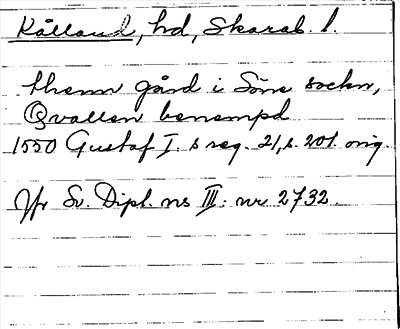 Kålland, hd, Skarab. l.
them gård i Söne sockn,
Qvallen benempd
1550 Gustaf I. s reg. 21, s. 201. orig.
Jfr Sv. Dipl. ns III: nr 2732.